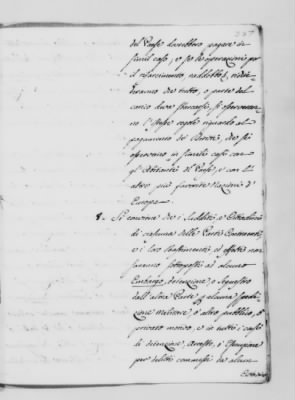 del Paese dovrebbero pagare in
simil caso, e se le operazioni per
il risarcimento, raddobbo &, richie-
deranno che tutto, o parte del
carico dava sbarcarsi, si osserveran-
no l'istesse regole riguardo al
pagamento de' Diritti, che si
osservano in simile caso con
gl'Abitanti del Paese, e con l'
altre più favorite Nazioni d'
Europa.
8. Si conviene che i Sudditi, e Cittadini
di ciascuna delle Parti Contraenti
e i loro bastimenti ed effetti non
saranno sottoposti ad alcuno
Embargo, detenzione, o sequestro
dall'altra Parte p. alcuna spedi-
zione militare, o altro pubblico, o
privato motivo, e in tutti i casi
di detenzione, arresto, o
per delitti commessi da alcun